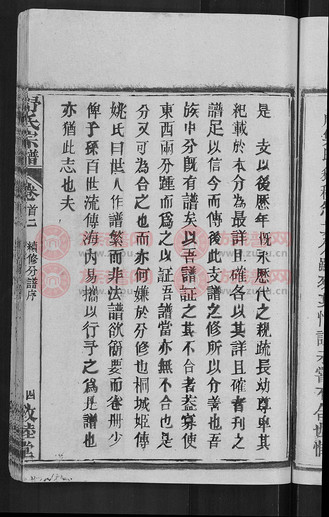 是　支以後歷年旣永歷代之親疏長幼尊卑其
紀載於本分為最詳且確者各以其詳且確者刊之
譜足以信今而傳後此支譜之修所以分善也吾
族中分旣有譜矣以吾譜証之其不合者盍寡使
東西兩分踵而為之以証吾譜當亦無不合也是
分又可為合之也而亦何嫌於分修也桐城姬傳
姚氏曰世人作譜繁而非法譜欲簡要而卷冊少
俾子孫百世流傳海內易攜以行予之為是譜也
亦猶此志也夫
氏宗譜
卷首二
續修分譜序
四
敦睦堂